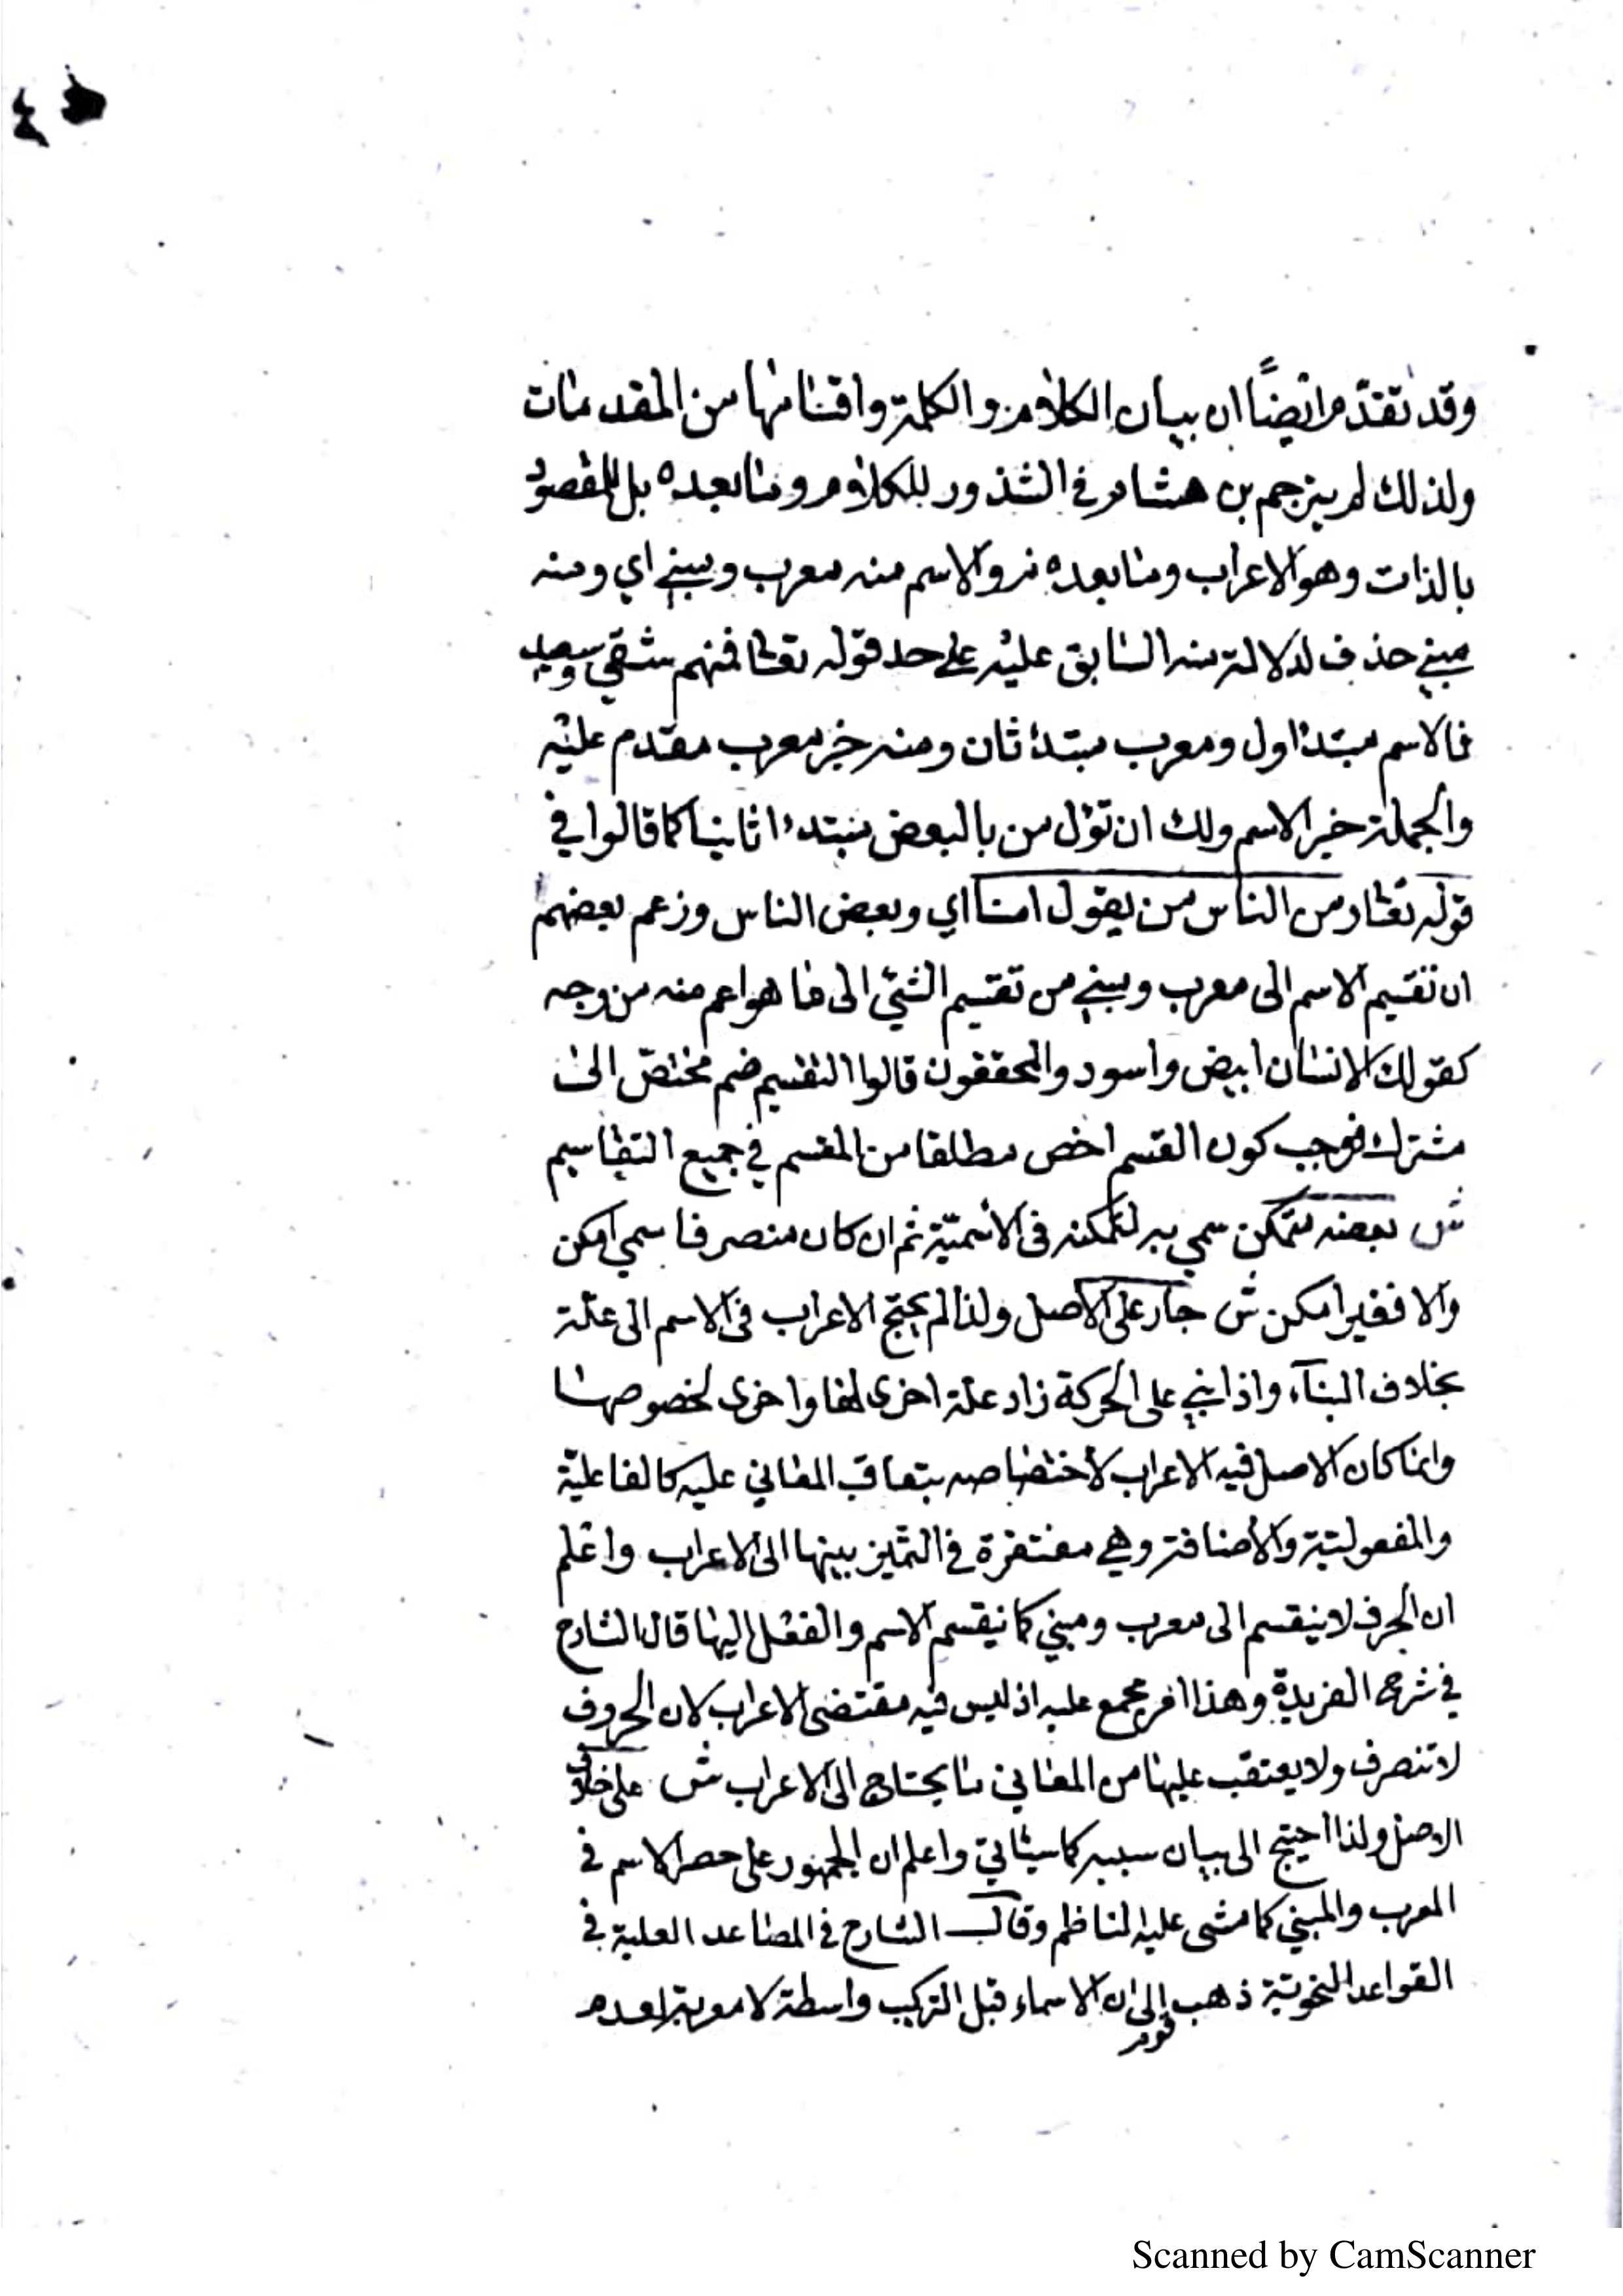 ٤
وقد تقدم ايضًا ان بيان الكلام والكلمة واقسامها من المقدمات
ولذلك لم يترجم بن هشام في الشذور للكلام وما بعده بل للمقصود
بالذات وهو الاعراب وما بعده والاسم منه معرب ومبني اي ومنه
مبني حذف لدلالة منه السابق عليه على حد قوله تعالى فمنهم شقي وسعيد
فالاسم مبتدأ اول ومعرب مبتدأ ثان ومنه خبر معرب مقدم عليه
والجملة خبر الاسم ولك ان تؤل من بالبعض مبتدءا ثانيا كما قالوا في
قوله تعالى ومن الناس من يقول امنا اي وبعض الناس وزعم بعضهم
ان تقسيم الاسم الى معرب ومبني من تقسيم الشئ الى ما هو اعم منه من وجه
كقولك الانسان ابيض واسود والمحققون قالوا التقسيم ضم مختصّ الى
مشترك فوجب كون القسم اخص مطلقا من المقسم في جميع التقاسيم
ش بعضه متمكن سمي به لتمكنه في الاسميّة ثم ان كان منصرفا سمي امكن
والا فغير امكن ش جار على الاصل ولذا لم يحتج الاعراب في الاسم الى علّة
بخلاف البنآء واذا بني على الحركة زاد علة اخرى لها واخرى لخصوصها
وانما كان الاصل فيه الاعراب لأختصاصه بتعاقب المعاني عليه كالفاعليّة
والمفعوليّة والأضافة وهي مفتقرة في التمّيز بينها الى الاعراب واعلم
ان الحرف لا ينقسم الى معرب ومبني كما ينقسم الاسم والفعل اليها قال الشارح
في شرح الفريدة وهذا امر مجمع عليه اذ ليس فيه مقتضى الاعراب لان الحروف
لا تتصرف ولا يعتقب عليها من المعاني ما يحتاج الى الاعراب ش على خلاف
الاصل ولذا احتيج الى بيان سببه كما سيأتي واعلم ان الجمهور على حصر الاسم في
المعرب والمبني كما مشى عليه الناظم وقال الشارح في المصاعد العلية في
القواعد النحويّة ذهب قوم الى ان الاسماء قبل التركيب واسطة لا معربة لعدم
Scanned by CamScanner